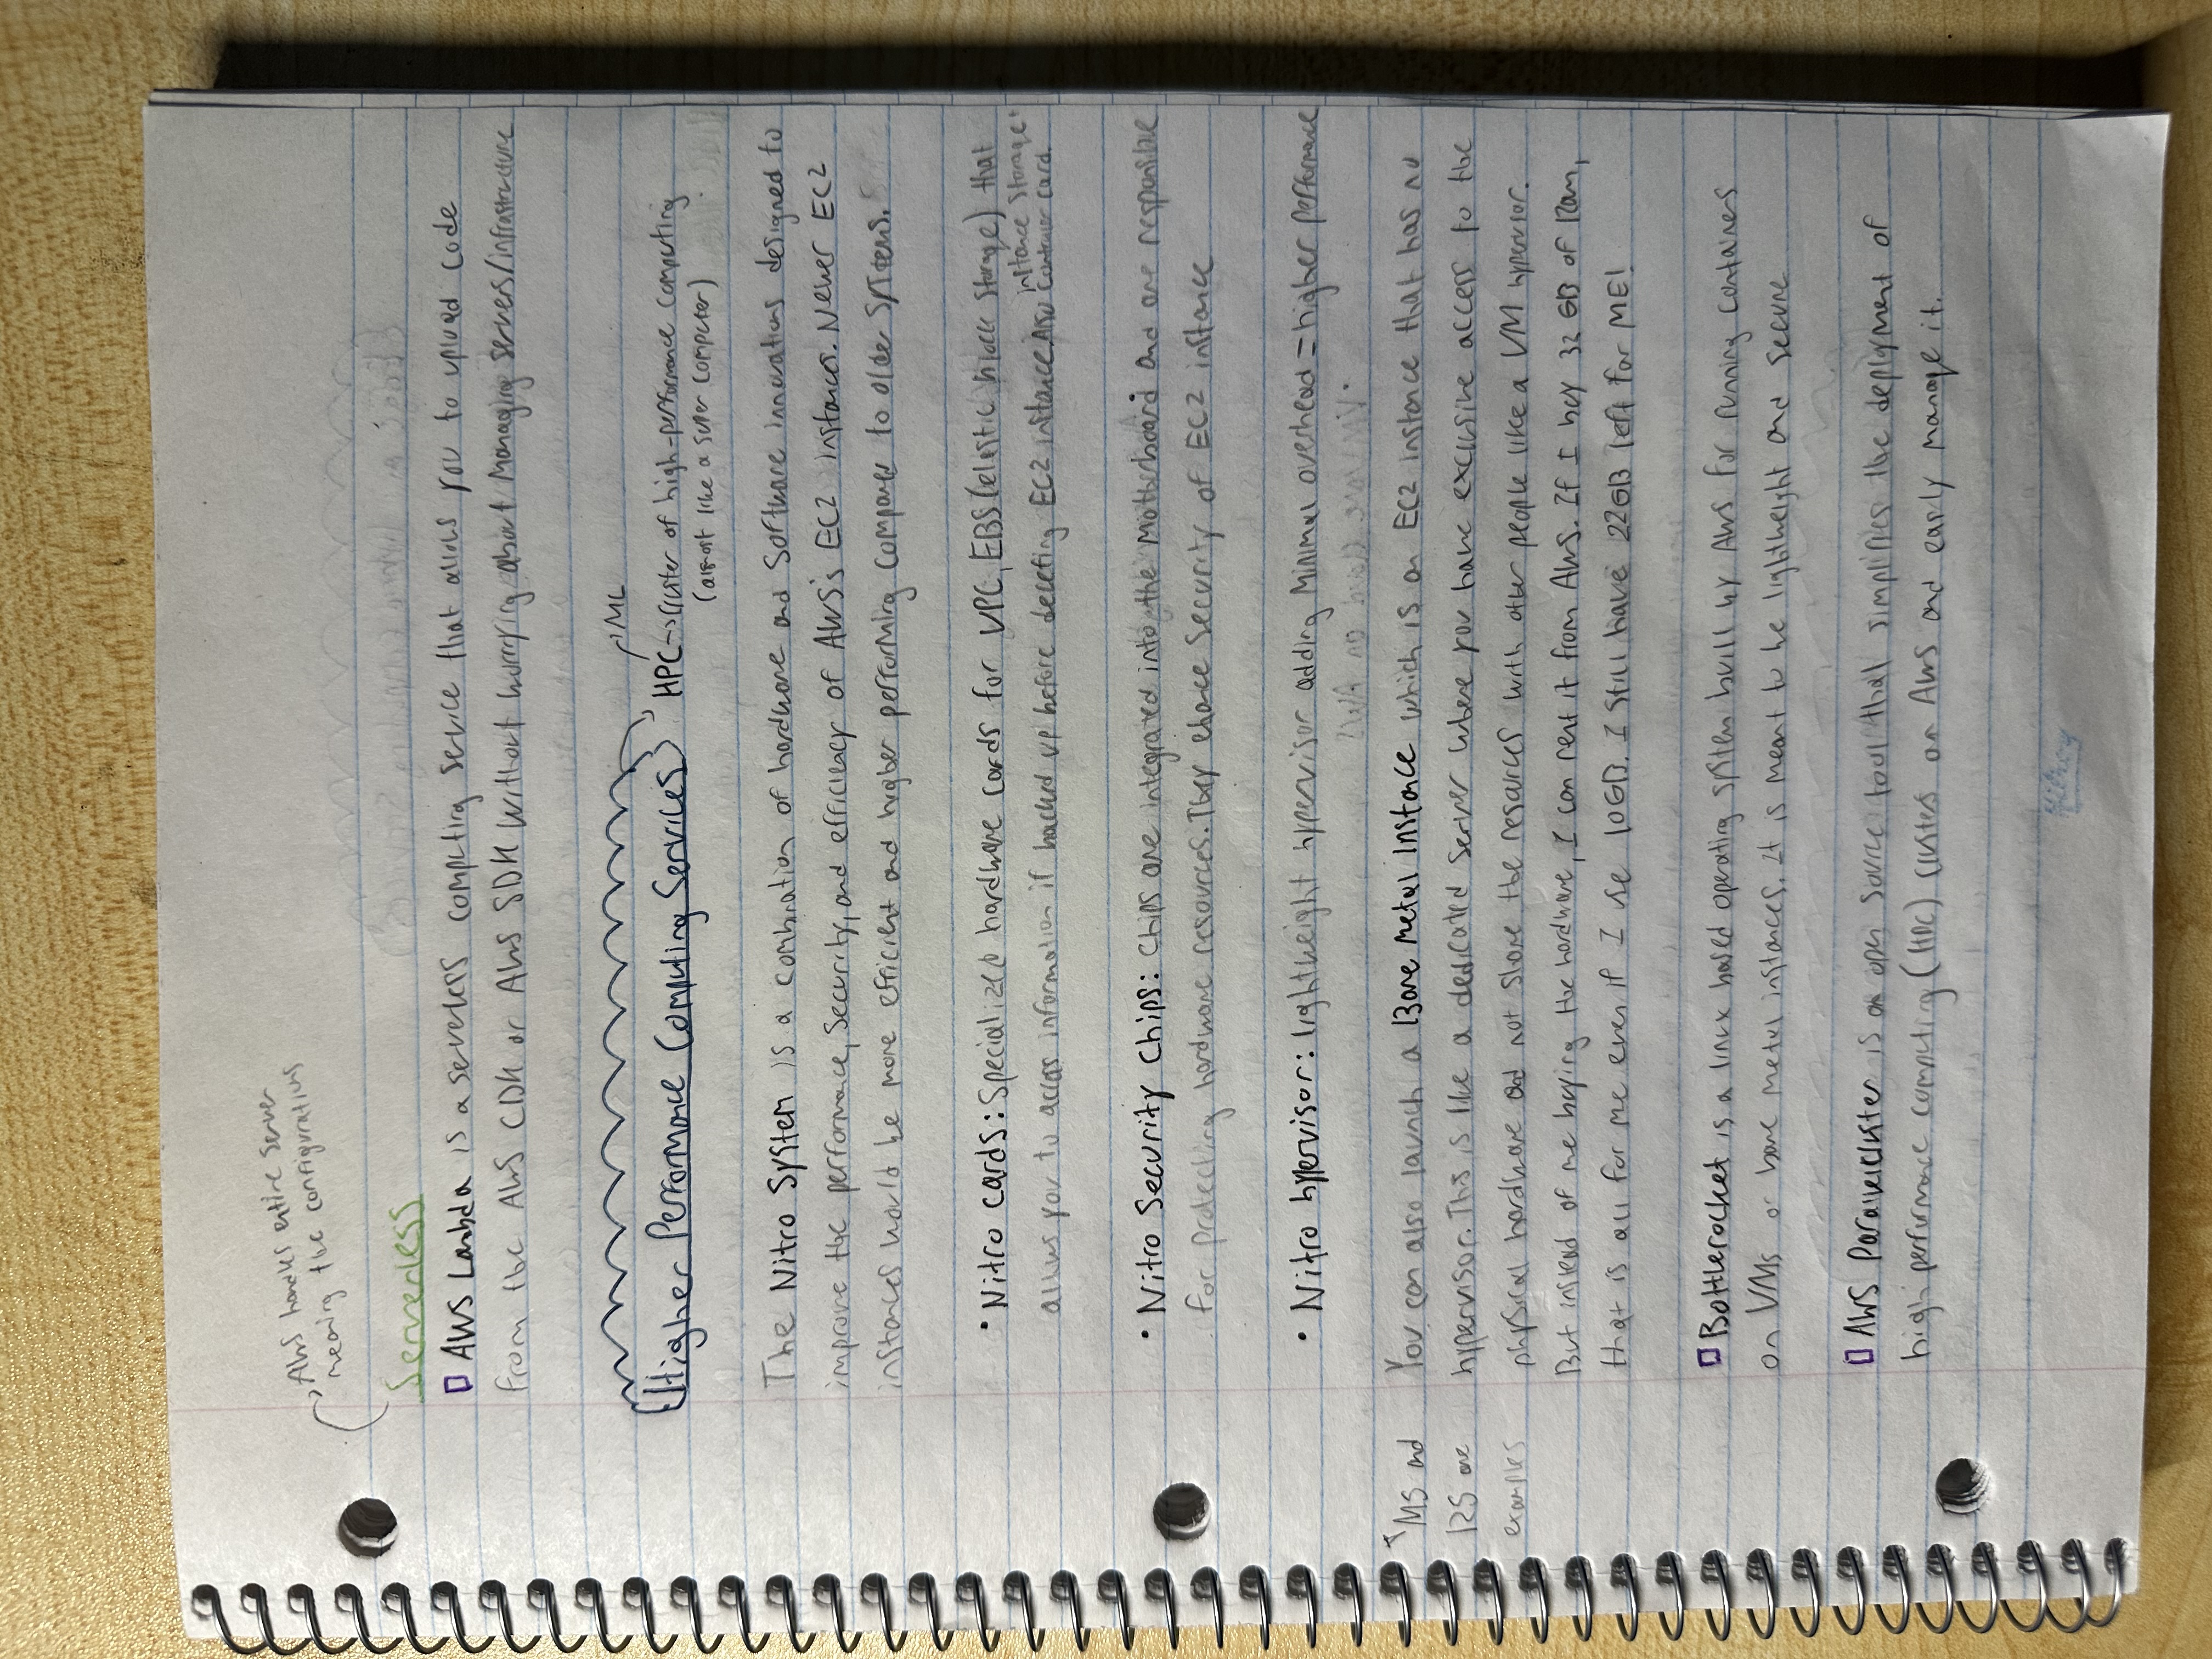 AWS handles entire server
meaning the configurations
Serverless
AWS Lambda is a serverless computing service that allows you to upload code
from the AWS CDK or AWS SDK without worrying about managing servers/infrastructure
ML
Higher Performance Computing Services
HPC→cluster of high-performance computing
(almost like a super computer)
The Nitro System is a combination of hardware and software innovations designed to
improve the performance, security, and efficiency of AWS's EC2 instances. Newer EC2
instances would be more efficient and higher performing compared to older systems.
• Nitro cards: Specialized hardware cards for VPC, EBS (elastic block storage) that
allows you to access information if backed up before deleting EC2 instance. Also instance storage
controller card.
• Nitro Security Chips: Chips are integrated into the motherboard and are responsible
for protecting hardware resources. They ehance security of EC2 instance
• Nitro hypervisor: lightweight hypervisor adding minimal overhead = higher performance
M5 and
R5 are
examples
You can also launch a Bare Metal Instance which is an EC2 instance that has no
hypervisor. This is like a dedicated server where you have exclusive access to the
physical hardware and not share the resources with other people like a VM hypervisor.
But instead of me buying the hardware, I can rent it from AWS. If I buy 32 GB of Ram,
that is all for me even if I use 10GB. I still have 22GB left for ME!
Bottlerocket is a linux based operating system built by AWS for running containers
on VMs or bare metal instances. It is meant to be lightweight and secure
AWS Parallelcluster is an open source tool that simplifies the deployment of
high performance computing (HPC) clusters on AWS and easily manage it.
Hilroy